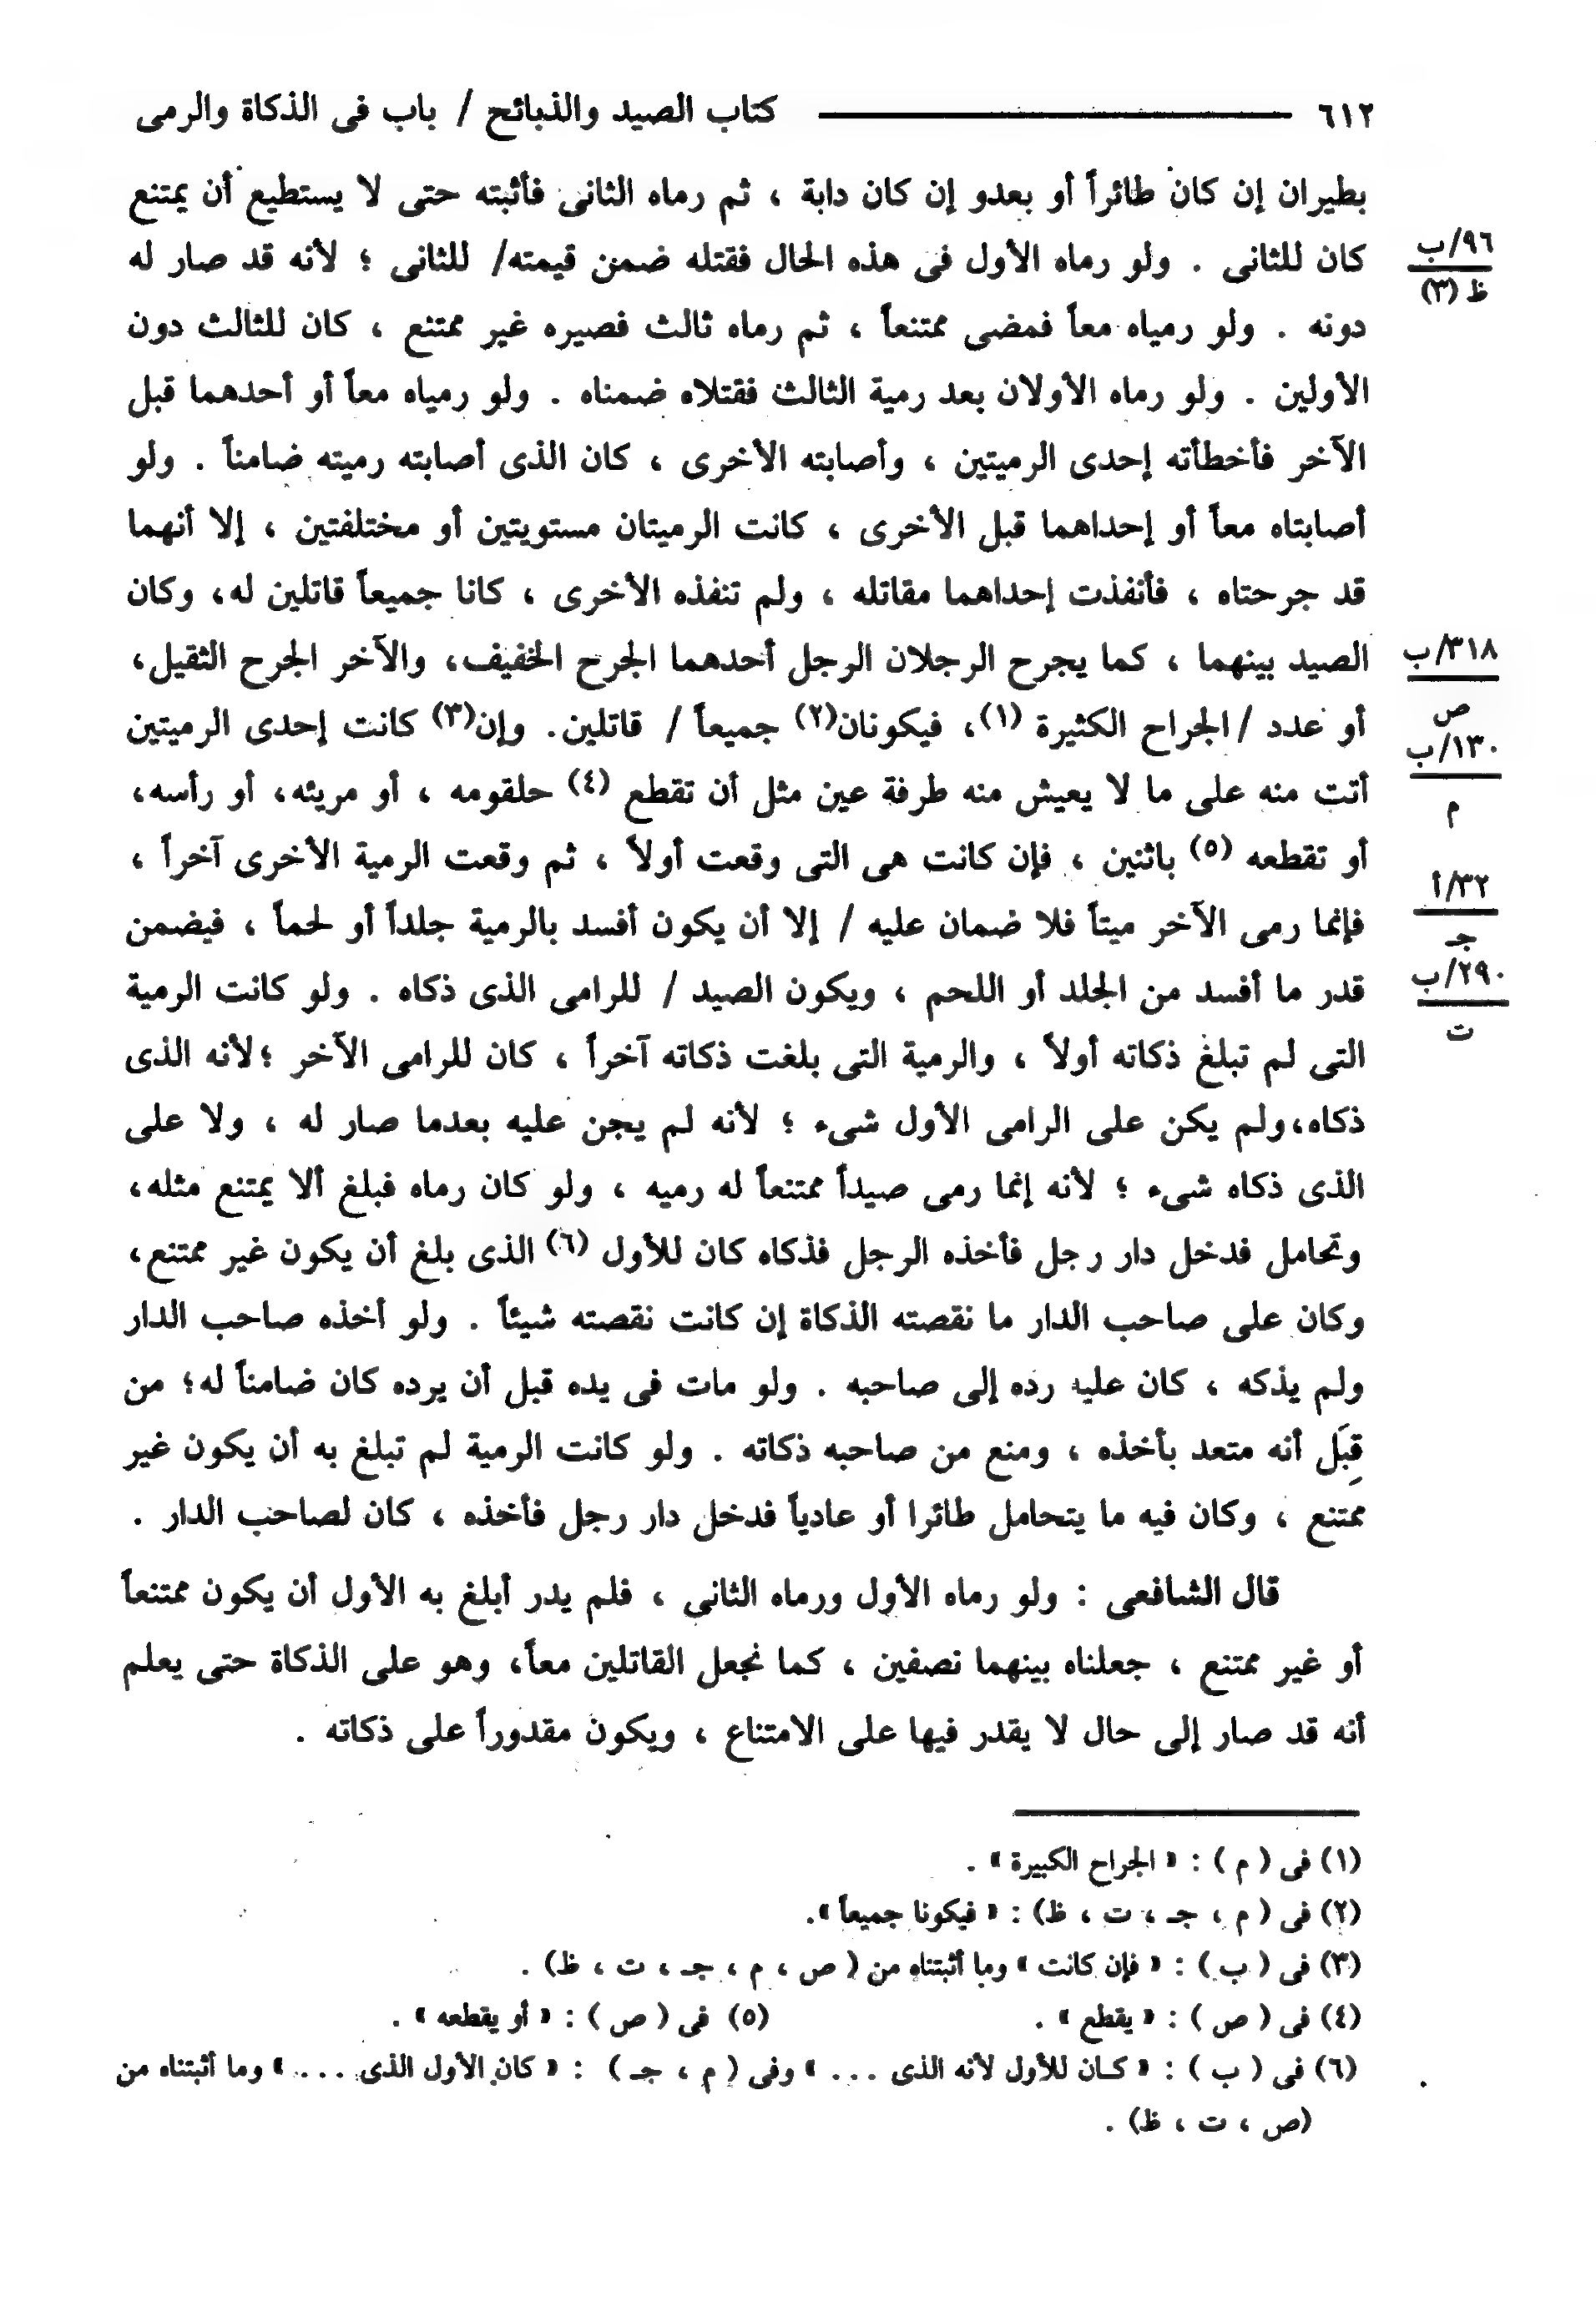 ٦١٢ ــــــــــــــــ كتاب الصيد والذبائح / باب فى الذكاة والرمى
بطيران إن كان طائراً أو بعدو إن كان دابة ، ثم رماه الثانى فأثبته حتى لا يستطيع أن يمتنع
كان للثانى . ولو رماه الأول فى هذه الحال فقتله ضمن قيمته/ للثانى ؛ لأنه قد صار له
٩٦/ب
ظ (٣)
دونه . ولو رمياه معاً فمضى ممتنعاً ، ثم رماه ثالث فصيره غير ممتنع ، كان للثالث دون
الأولين . ولو رماه الأولان بعد رمية الثالث فقتلاه ضمناه . ولو رمياه معاً أو أحدهما قبل
الآخر فأخطأته إحدى الرميتين ، وأصابته الأخرى ، كان الذى أصابته رميته ضامناً . ولو
أصابتاه معاً أو إحداهما قبل الأخرى ، كانت الرميتان مستويتين أو مختلفتين ، إلا أنهما
قد جرحتاه ، فأنفذت إحداهما مقاتله ، ولم تنفذه الأخرى ، كانا جميعاً قاتلين له، وكان
الصيد بينهما ، كما يجرح الرجلان الرجل أحدهما الجرح الخفيف، والآخر الجرح الثقيل،
٣١٨/ب
ص
أو عدد /الجراح الكثيرة (١)، فيكونان(٢) جميعاً / قاتلين. وإن(٣) كانت إحدى الرميتين
١٣٠/ب
م
أتت منه على ما لا يعيش منه طرفة عين مثل أن تقطع (٤) حلقومه ، أو مريئه، أو رأسه،
أو تقطعه (٥) باثنين ، فإن كانت هى التى وقعت أولاً ، ثم وقعت الرمية الأخرى آخراً ،
٣٢/أ
جـ
فإنما رمى الآخر ميتاً فلا ضمان عليه / إلا أن يكون أفسد بالرمية جلداً أو لحماً ، فيضمن
قدر ما أفسد من الجلد أو اللحم ، ويكون الصيد / للرامى الذى ذكاه . ولو كانت الرمية
٢٩٠/ب
ت
التى لم تبلغ ذكاته أولاً ، والرمية التى بلغت ذكاته آخراً ، كان للرامى الآخر ؛لأنه الذى
ذكاه،ولم يكن على الرامى الأول شىء ؛ لأنه لم يجن عليه بعدما صار له ، ولا على
الذى ذكاه شىء ؛ لأنه إنما رمى صيداً ممتنعاً له رميه ، ولو كان رماه فبلغ ألا يمتنع مثله،
وتحامل فدخل دار رجل فأخذه الرجل فذكاه كان للأول (٦) الذى بلغ أن يكون غير ممتنع،
وكان على صاحب الدار ما نقصته الذكاة إن كانت نقصته شيئاً . ولو أخذه صاحب الدار
ولم يذكه ، كان عليه رده إلى صاحبه . ولو مات فى يده قبل أن يرده كان ضامناً له؛ من
قِبَل أنه متعد بأخذه ، ومنع من صاحبه ذكاته . ولو كانت الرمية لم تبلغ به أن يكون غير
ممتنع ، وكان فيه ما يتحامل طائرا أو عادياً فدخل دار رجل فأخذه ، كان لصاحب الدار .
قال الشافعى : ولو رماه الأول ورماه الثانى ، فلم يدر أبلغ به الأول أن يكون ممتنعاً
أو غير ممتنع ، جعلناه بينهما نصفين ، كما نجعل القاتلين معاً، وهو على الذكاة حتى يعلم
أنه قد صار إلى حال لا يقدر فيها على الامتناع ، ويكون مقدوراً على ذكاته .
(١) فى ( م ) : « الجراح الكبيرة » .
(٢) فى ( م ، جـ ، ت ، ظ) : « فيكونا جميعاً ».
(٣) فى ( ب ) : « فإن كانت » وما أثبتناه من ( ص ، م ، جـ ، ت ، ظ) .
(٤) فى ( ص ) : « يقطع » . (٥) فى ( ص ) : « أو يقطعه » .
(٦) فى ( ب ) : « كـان للأول لأنه الذى ... » وفى ( م ، جـ ) : « كان الأول الذى ... » وما أثبتناه من
(ص ، ت ، ظ) .